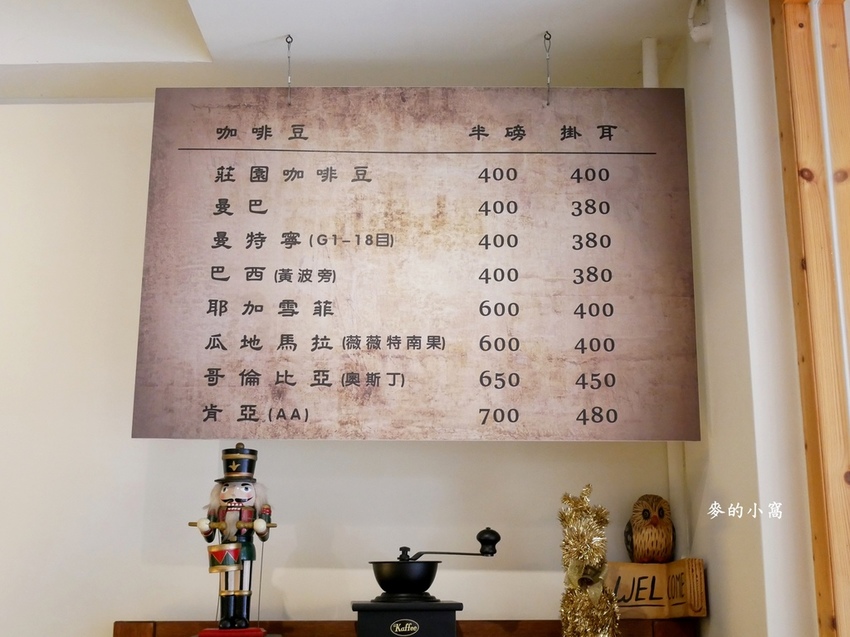 咖啡豆 半磅 掛耳
莊園咖啡豆 400 400
曼巴 400 380
曼特寧(G1-18目) 400 380
巴西(黃波旁) 400 380
耶加雪菲 600 400
瓜地馬拉(薇薇特南果) 600 400
哥倫比亞(奧斯丁) 650 450
肯亞(AA) 700 480
麥的小窩
WELCOME
Kaffee